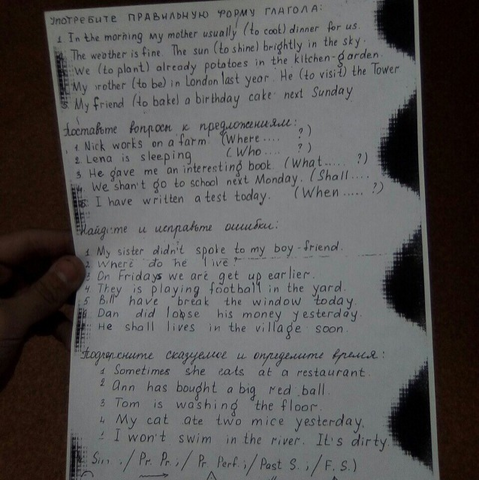 УПОТРЕБИТЕ ПРАВИЛЬНУЮ ФОРМУ ГЛАГОЛА:
1 In the morning my mother usually (to cook) dinner for us.
The weather is fine. The sun (to shine) brightly in the sky.
We (to plant) already potatoes in the kitchen-garden.
My brother (to be) in London last year. He (to visit) the Tower
My friend (to bake) a birthday cake next Sunday
Поставьте вопросы к предложениям:
1 Nick works on a farm (Where .... ?)
2 Lena is sleeping (Who .... ?)
3 He gave me an interesting book. (What..... ?)
4 We shan't go to school next Monday. (Shall ....
5 I have written a test today. (When ..... ?)
Найдите и исправьте ошибки:
1 My sister didn't spoke to my boy-friend.
2 Where do he live?
3 On Fridays we are get up earlier.
4 They is playing football in the yard.
5 Bill have break the window today.
6 Dan did loose his money yesterday.
He shall lives in the village soon.
Подчеркните сказуемое и определите время:
1 Sometimes she eats at a restaurant.
2 Ann has bought a big red ball.
3 Tom is washing the floor.
4 My cat ate two mice yesterday.
I won't swim in the river. It's dirty.
/ Pr. Pr. ; / Pr. Perf. ; / Past S. ; / F. S.)